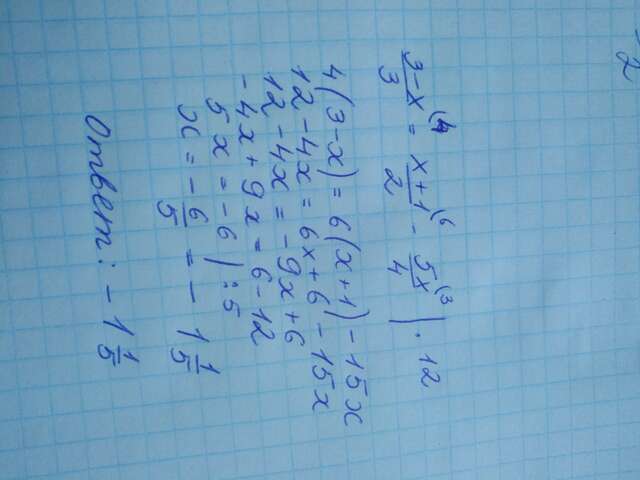 -2
(3-x)/3 ⁽⁴ = (x+1)/2 ⁽⁶ - 5x/4 ⁽³ | · 12
4(3-x) = 6(x+1) - 15x
12 - 4x = 6x + 6 - 15x
12 - 4x = -9x + 6
-4x + 9x = 6 - 12
5x = -6 | : 5
x = -6/5 = -1 1/5
Ответ: -1 1/5